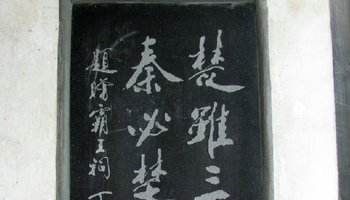 楚雖三
秦必楚
題賸霸王祠